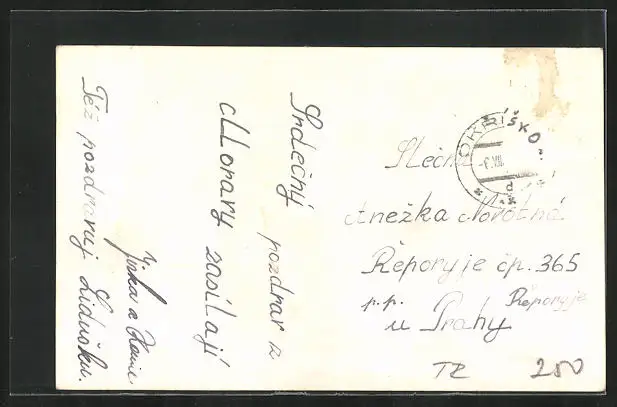 Srdečný pozdrav z
Moravy zasílají
Jirka a
Též pozdravuj Lidušku.
OKŘÍŠKO
Slečna
Anežka Novotná
Řeporyje čp. 365
p.p. Řeporyje
u Prahy
TZ 250